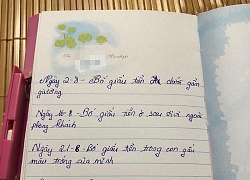 Ngày 2-8 - Bố giấu tiền ở dưới gầm
giường
Ngày 16-8 - Bố giấu tiền ở sau tivi ngoài
phòng khách
Ngày 21-8 - Bố giấu tiền trong con gấu
màu trắng của mình